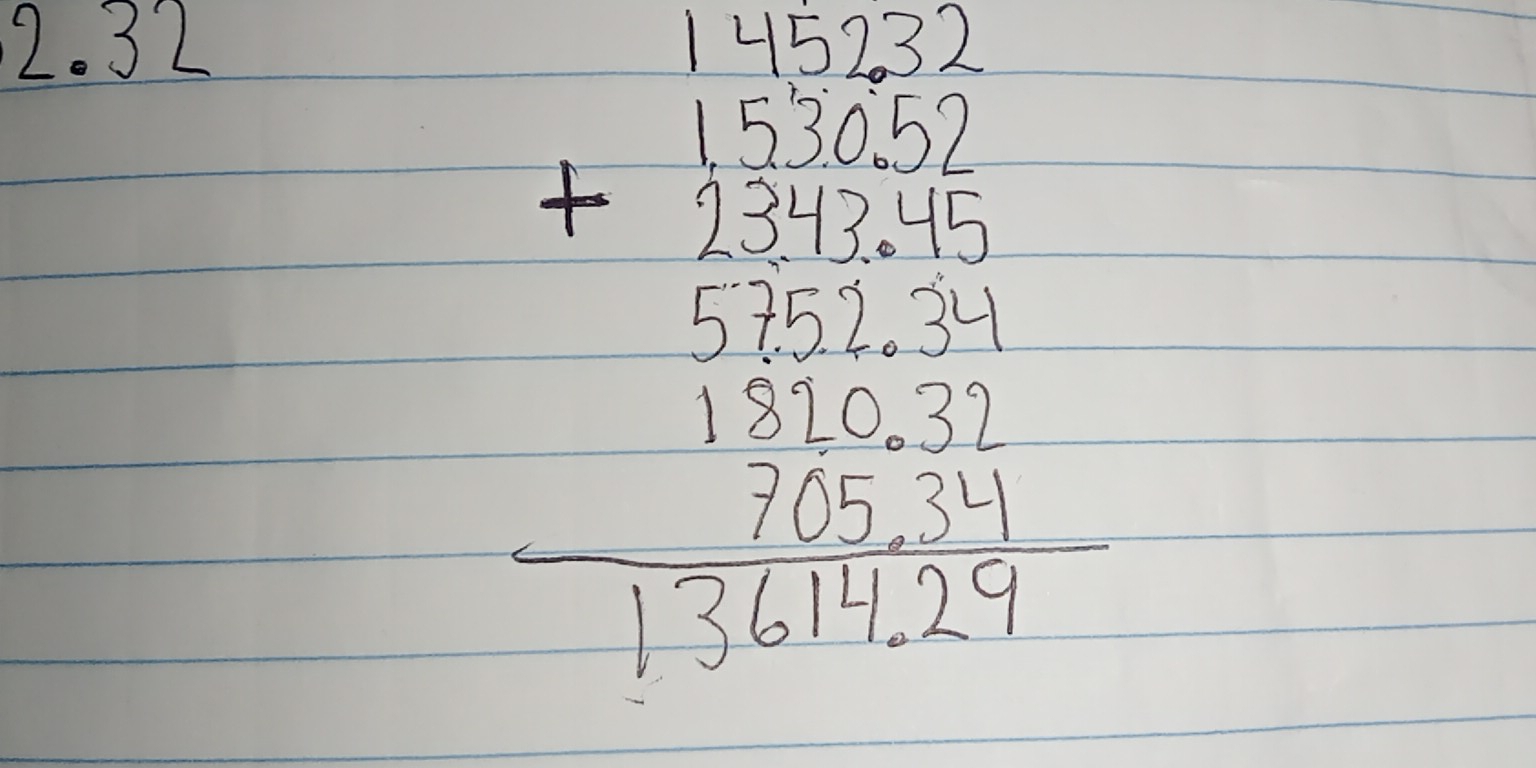 2.32 1452.32
1530.52
+ 2343.45
5752.34
1820.32
705.34
13614.29